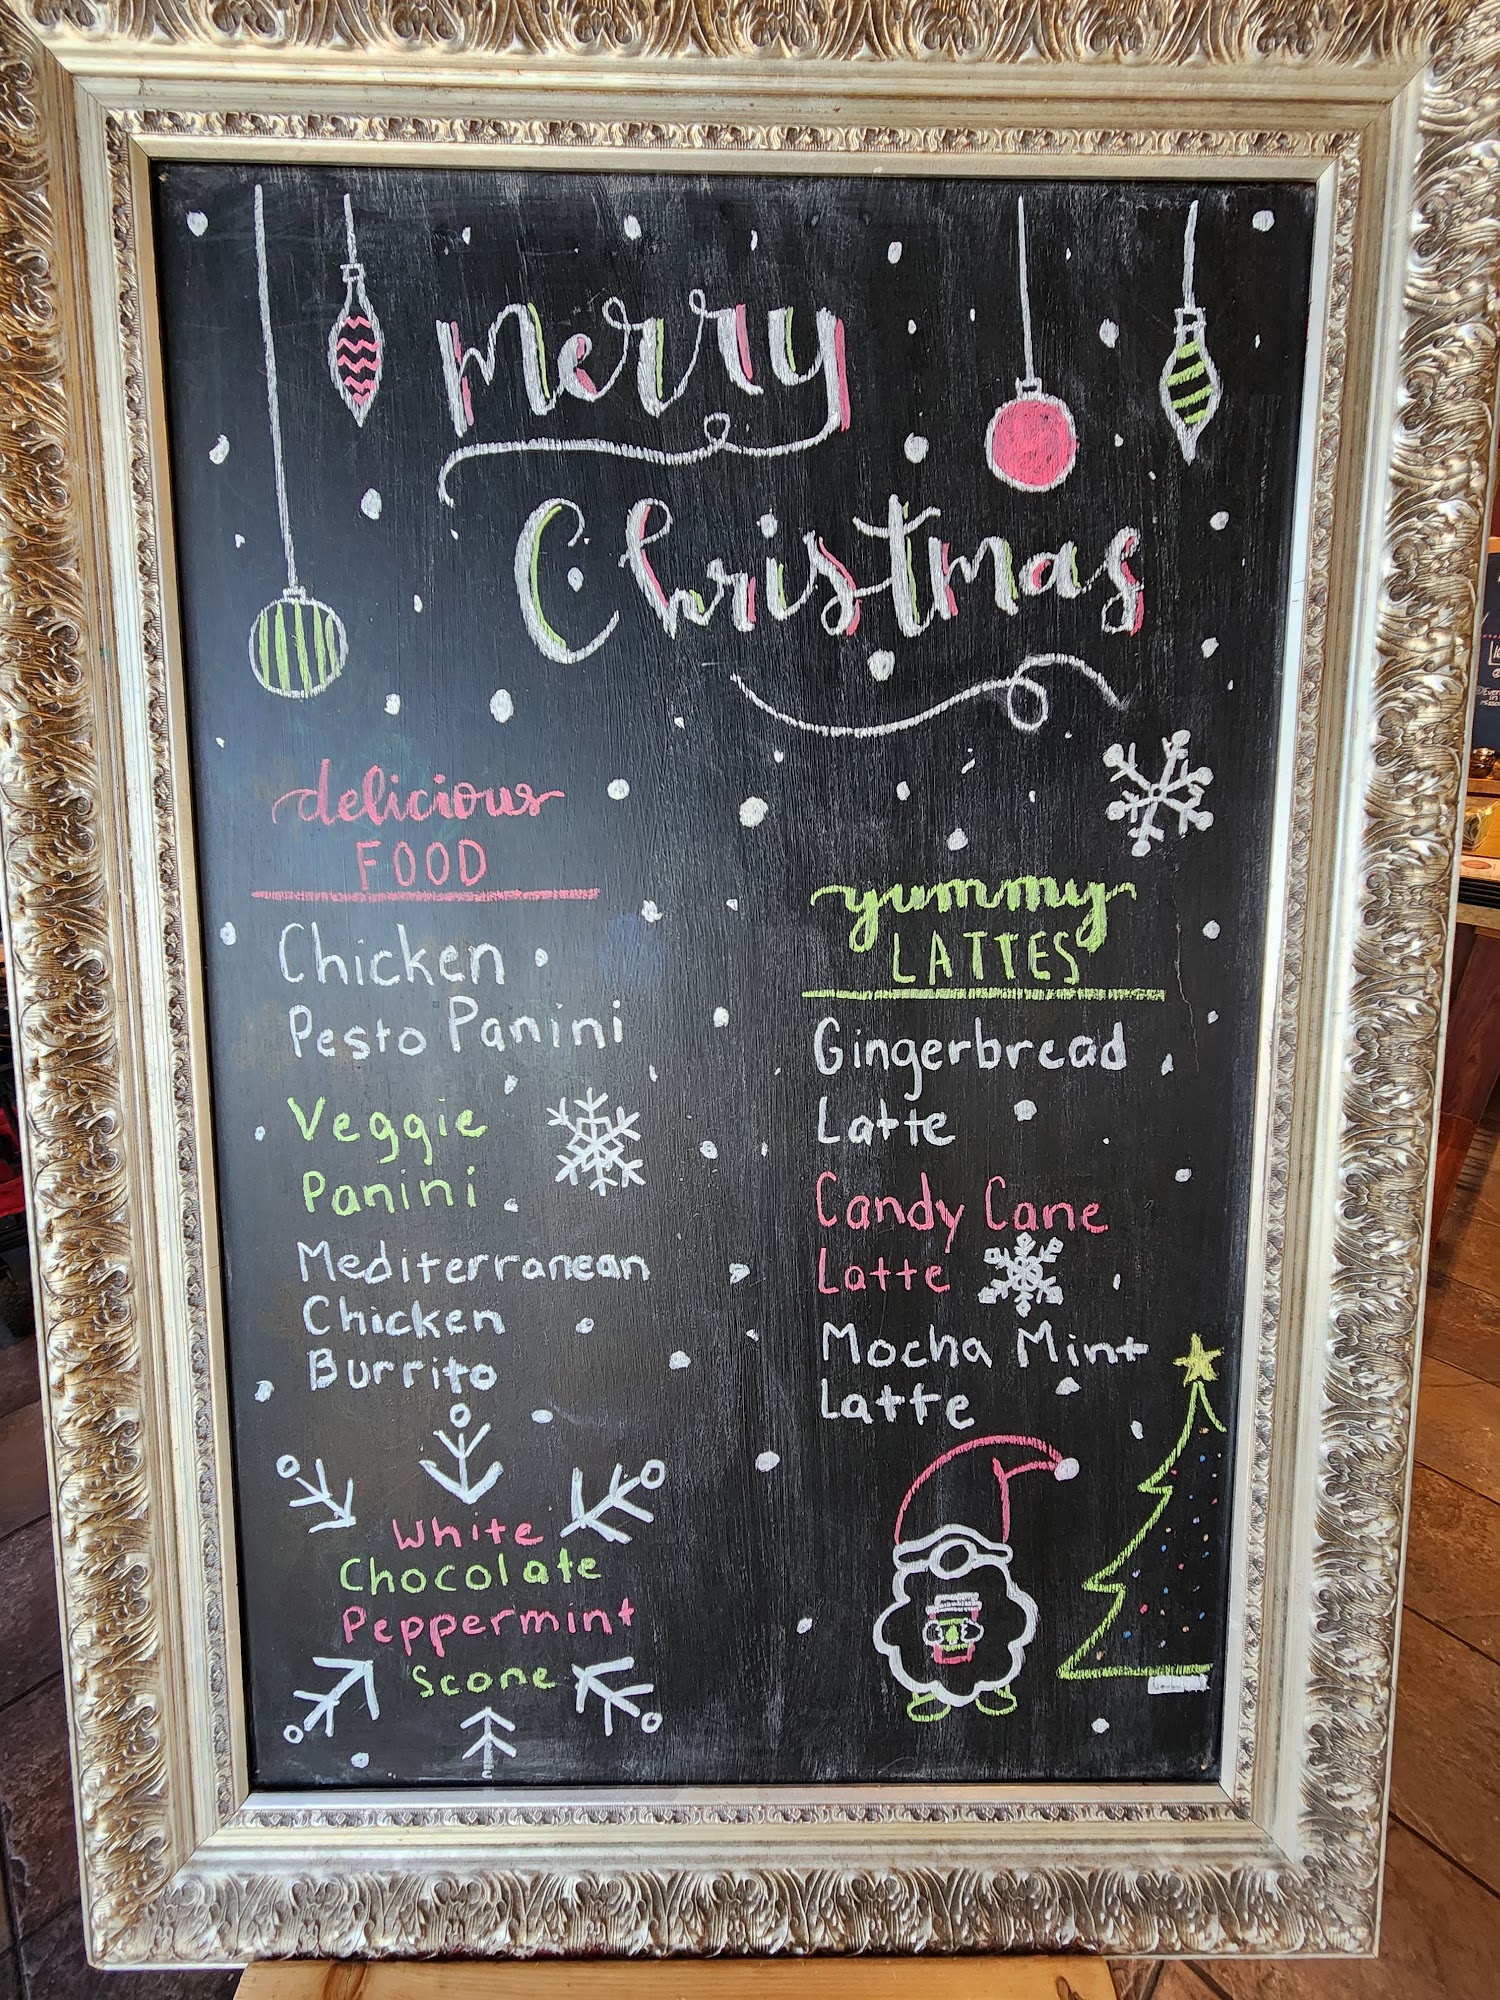 merry
Christmas
delicious
FOOD
Chicken
Pesto Panini
Veggie
Panini
Mediterranean
Chicken
Burrito
White
Chocolate
Peppermint
Scone
yummy
LATTES
Gingerbread
Latte
Candy Cane
Latte
Mocha Mint
Latte